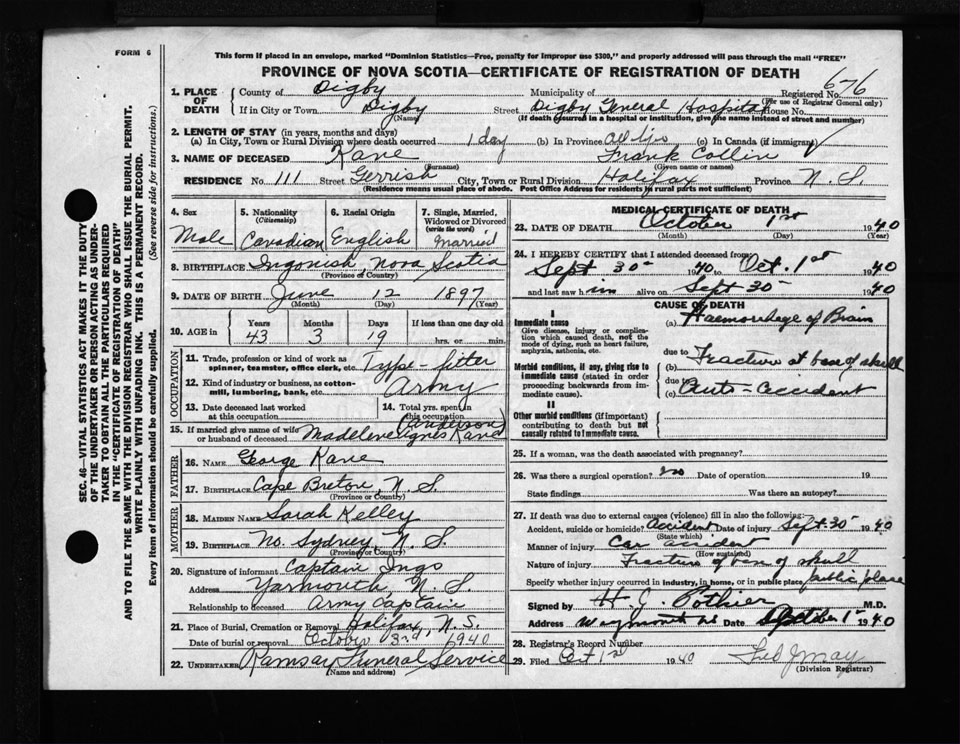 FORM 6
This form if placed in an envelope, marked "Dominion Statistics—Free, penalty for improper use $300," and properly addressed will pass through the mail "FREE"
PROVINCE OF NOVA SCOTIA—CERTIFICATE OF REGISTRATION OF DEATH
SEC. 46—VITAL STATISTICS ACT MAKES IT THE DUTY
OF THE UNDERTAKER OR PERSON ACTING AS UNDER-
TAKER TO OBTAIN ALL THE PARTICULARS REQUIRED
IN THE "CERTIFICATE OF REGISTRATION OF DEATH"
AND TO FILE THE SAME WITH THE DIVISION REGISTRAR WHO SHALL ISSUE THE BURIAL PERMIT.
WRITE PLAINLY WITH UNFADING INK. THIS IS A PERMANENT RECORD.
Every item of information should be carefully supplied. (See reverse side for instructions.)
1. PLACE OF DEATH County of Digby Municipality of Registered No. 676
(For use of Registrar General only)
If in City or Town Digby Street Digby General Hospital House No.
(Name) (If death occurred in a hospital or institution, give the name instead of street and number)
2. LENGTH OF STAY (in years, months and days)
(a) In City, Town or Rural Division where death occurred 1 day (b) In Province all life (c) In Canada (if immigrant)
3. NAME OF DECEASED Kane Frank Collin
(Surname) (Given name or names)
RESIDENCE No. 111 Street Gerrish City, Town or Rural Division Halifax Province N. S.
(Residence means usual place of abode. Post Office Address for residents in rural parts not sufficient)
4. Sex Male
5. Nationality (Citizenship) Canadian
6. Racial Origin English
7. Single, Married, Widowed or Divorced (write the word) Married
8. BIRTHPLACE Ingonish, Nova Scotia
(Province or Country)
9. DATE OF BIRTH June 12 1897
(Month) (Day) (Year)
10. AGE in Years 43 Months 3 Days 19 If less than one day old hrs. or min.
OCCUPATION
11. Trade, profession or kind of work as spinner, teamster, office clerk, etc. Type-fitter
12. Kind of industry or business, as cotton-mill, lumbering, bank, etc. Army
13. Date deceased last worked at this occupation
14. Total yrs. spent in this occupation
15. If married give name of wife or husband of deceased (Anderson) Agnes Kane
FATHER
16. NAME George Kane
17. BIRTHPLACE Cape Breton, N. S.
(Province or Country)
MOTHER
18. MAIDEN NAME Sarah Kelley
19. BIRTHPLACE No. Sydney, N. S.
(Province or Country)
20. Signature of informant Captain Ings
Address Yarmouth, N. S.
Relationship to deceased Army Captain
21. Place of Burial, Cremation or Removal Halifax, N. S.
Date of burial or removal October 3rd 1940
22. UNDERTAKER Ramsay Funeral Service
(Name and address)
MEDICAL CERTIFICATE OF DEATH
23. DATE OF DEATH October 1st 1940
(Month) (Day) (Year)
24. I HEREBY CERTIFY that I attended deceased from
Sept 30th 1940 to Oct. 1st 1940
and last saw him alive on Sept 30th 1940
CAUSE OF DEATH
I
Immediate cause
Give disease, injury or complication which caused death, not the mode of dying, such as heart failure, asphyxia, asthenia, etc.
(a) Haemorrhage of Brain
Morbid conditions, if any, giving rise to immediate cause (stated in order proceeding backwards from immediate).
due to (b) Fracture at base of skull
due to (c) Auto-accident
II
Other morbid conditions (if important) contributing to death but not causally related to immediate cause.
25. If a woman, was the death associated with pregnancy?
26. Was there a surgical operation? no Date of operation 19
State findings Was there an autopsy?
27. If death was due to external causes (violence) fill in also the following:
Accident, suicide or homicide? accident Date of injury Sept 30th 1940
(State which)
Manner of injury Car accident
(How sustained)
Nature of injury Fracture of base of skull
Specify whether injury occurred in industry, in home, or in public place public place
Signed by H. J. Pothier M.D.
Address Weymouth Date October 1st 1940
28. Registrar's Record Number
29. Filed Oct 1st 1940
(Division Registrar)